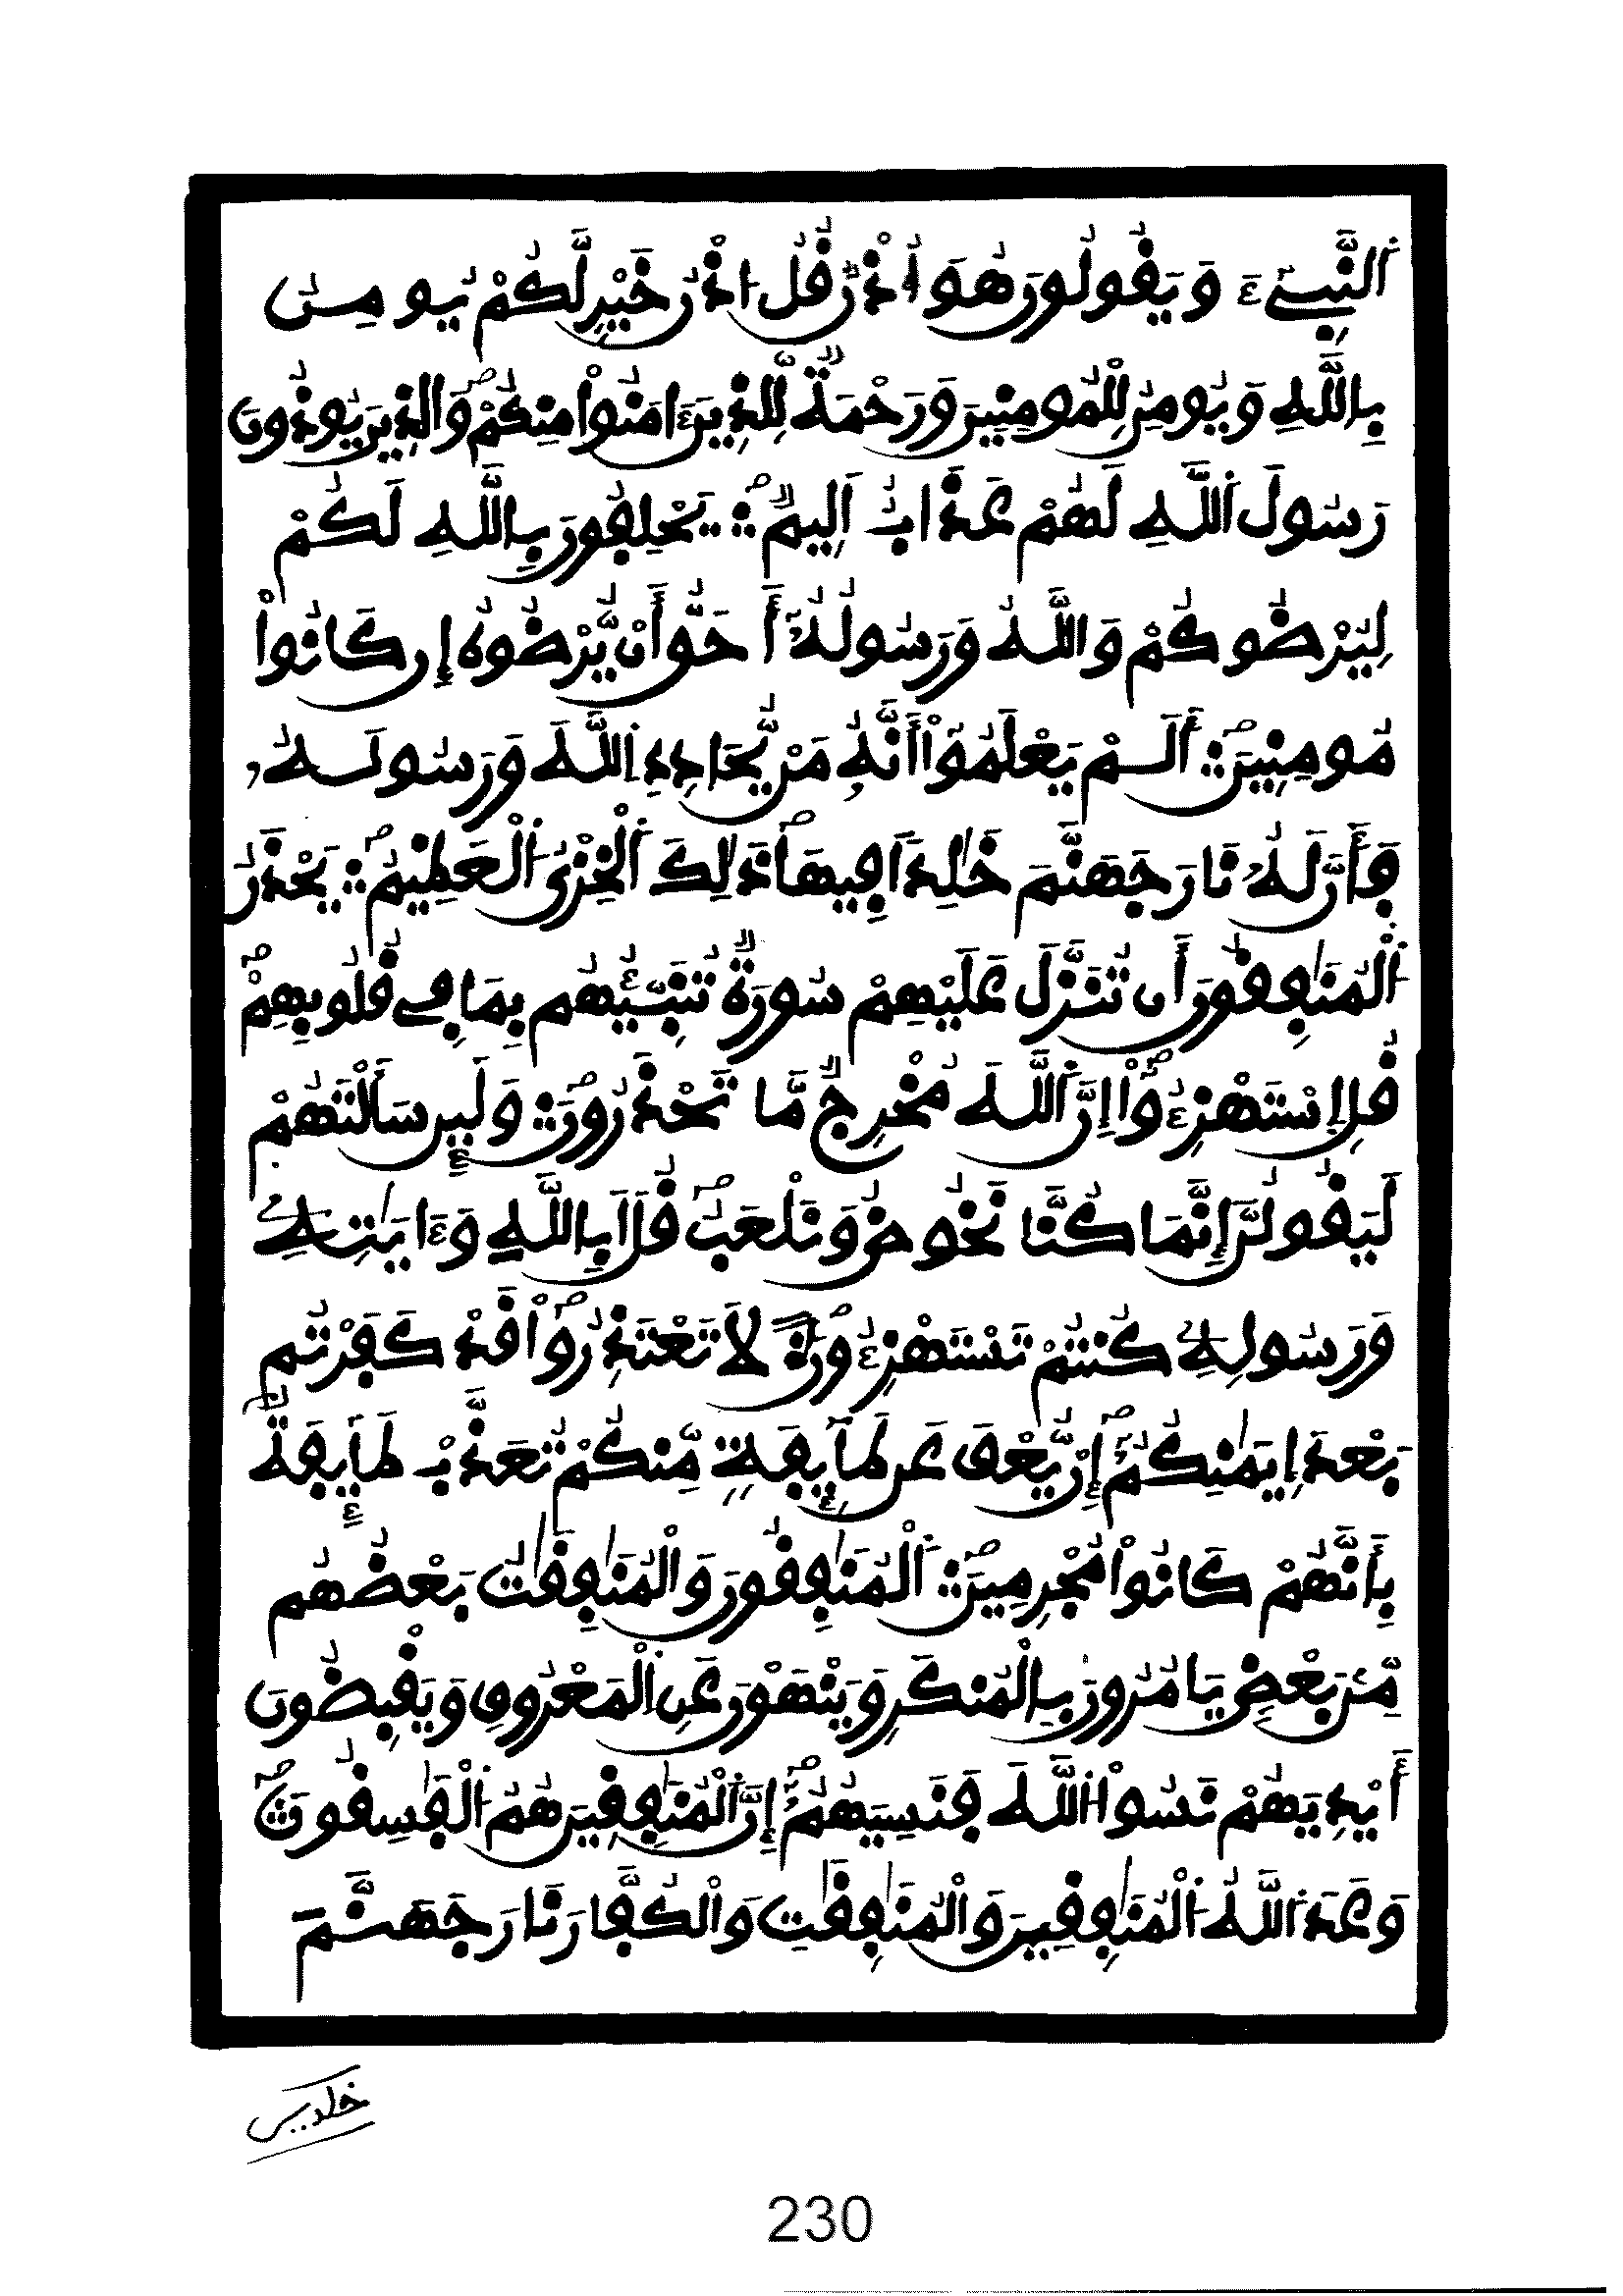 اَ۬لنَّبِےٓءَ وَيَقُولُونَ هُوَ أُذْنٞ قُلُ اذْنُ خَيْرٖ لَّكُمْ يُومِنُ
بِاللَّهِ وَيُومِنُ لِلْمُومِنِينَ وَرَحْمَةٞ لِّلذِينَ ءَامَنُواْ مِنكُمْ وَالذِينَ يُوذُونَ
رَسُولَ اَ۬للَّهِ لَهُمْ عَذَابٌ اَلِيمٞ يَحْلِفُونَ بِاللَّهِ لَكُمْ
لِيُرْضُوكُمْ وَاللَّهُ وَرَسُولُهُۥٓ أَحَقُّ أَنْ يُّرْضُوهُ إِن كَانُواْ
مُومِنِينَ أَلَمْ يَعْلَمُوٓاْ أَنَّهُۥ مَنْ يُّحَادِدِ اِ۬للَّهَ وَرَسُولَهُۥ
فَأَنَّ لَهُۥ نَارَ جَهَنَّمَ خَٰلِداٗ فِيهَا ذَٰلِكَ اَ۬لْخِزْيُ اُ۬لْعَظِيمُ يَحْذَرُ
اُ۬لْمُنَٰفِقُونَ أَن تُنَزَّلَ عَلَيْهِمْ سُورَةٞ تُنَبِّئُهُم بِمَا فِے قُلُوبِهِمْ
قُلِ اِ۪سْتَهْزِءُوٓاْ إِنَّ اَ۬للَّهَ مُخْرِجٞ مَّا تَحْذَرُونَ وَلَئِن سَأَلْتَهُمْ
لَيَقُولُنَّ إِنَّمَا كُنَّا نَخُوضُ وَنَلْعَبُ قُلَ اَبِاللَّهِ وَءَايَٰتِهِۦ
وَرَسُولِهِۦ كُنتُمْ تَسْتَهْزِءُونَ لَا تَعْتَذِرُواْ قَدْ كَفَرْتُم
بَعْدَ إِيمَٰنِكُمُۥٓ إِنْ يُّعْفَ عَن طَآئِفَةٖ مِّنكُمْ تُعَذَّبْ طَآئِفَةُۢ
بِأَنَّهُمْ كَانُواْ مُجْرِمِينَ اَ۬لْمُنَٰفِقُونَ وَالْمُنَٰفِقَٰتُ بَعْضُهُم
مِّنۢ بَعْضٖ يَامُرُونَ بِالْمُنكَرِ وَيَنْهَوْنَ عَنِ اِ۬لْمَعْرُوفِ وَيَقْبِضُونَ
أَيْدِيَهُمْ نَسُواْ اُ۬للَّهَ فَنَسِيَهُمُۥٓ إِنَّ اَ۬لْمُنَٰفِقِينَ هُمُ اُ۬لْفَٰسِقُونَ
وَعَدَ اَ۬للَّهُ اُ۬لْمُنَٰفِقِينَ وَالْمُنَٰفِقَٰتِ وَالْكُفَّارَ نَارَ جَهَنَّمَ
خلدين
230